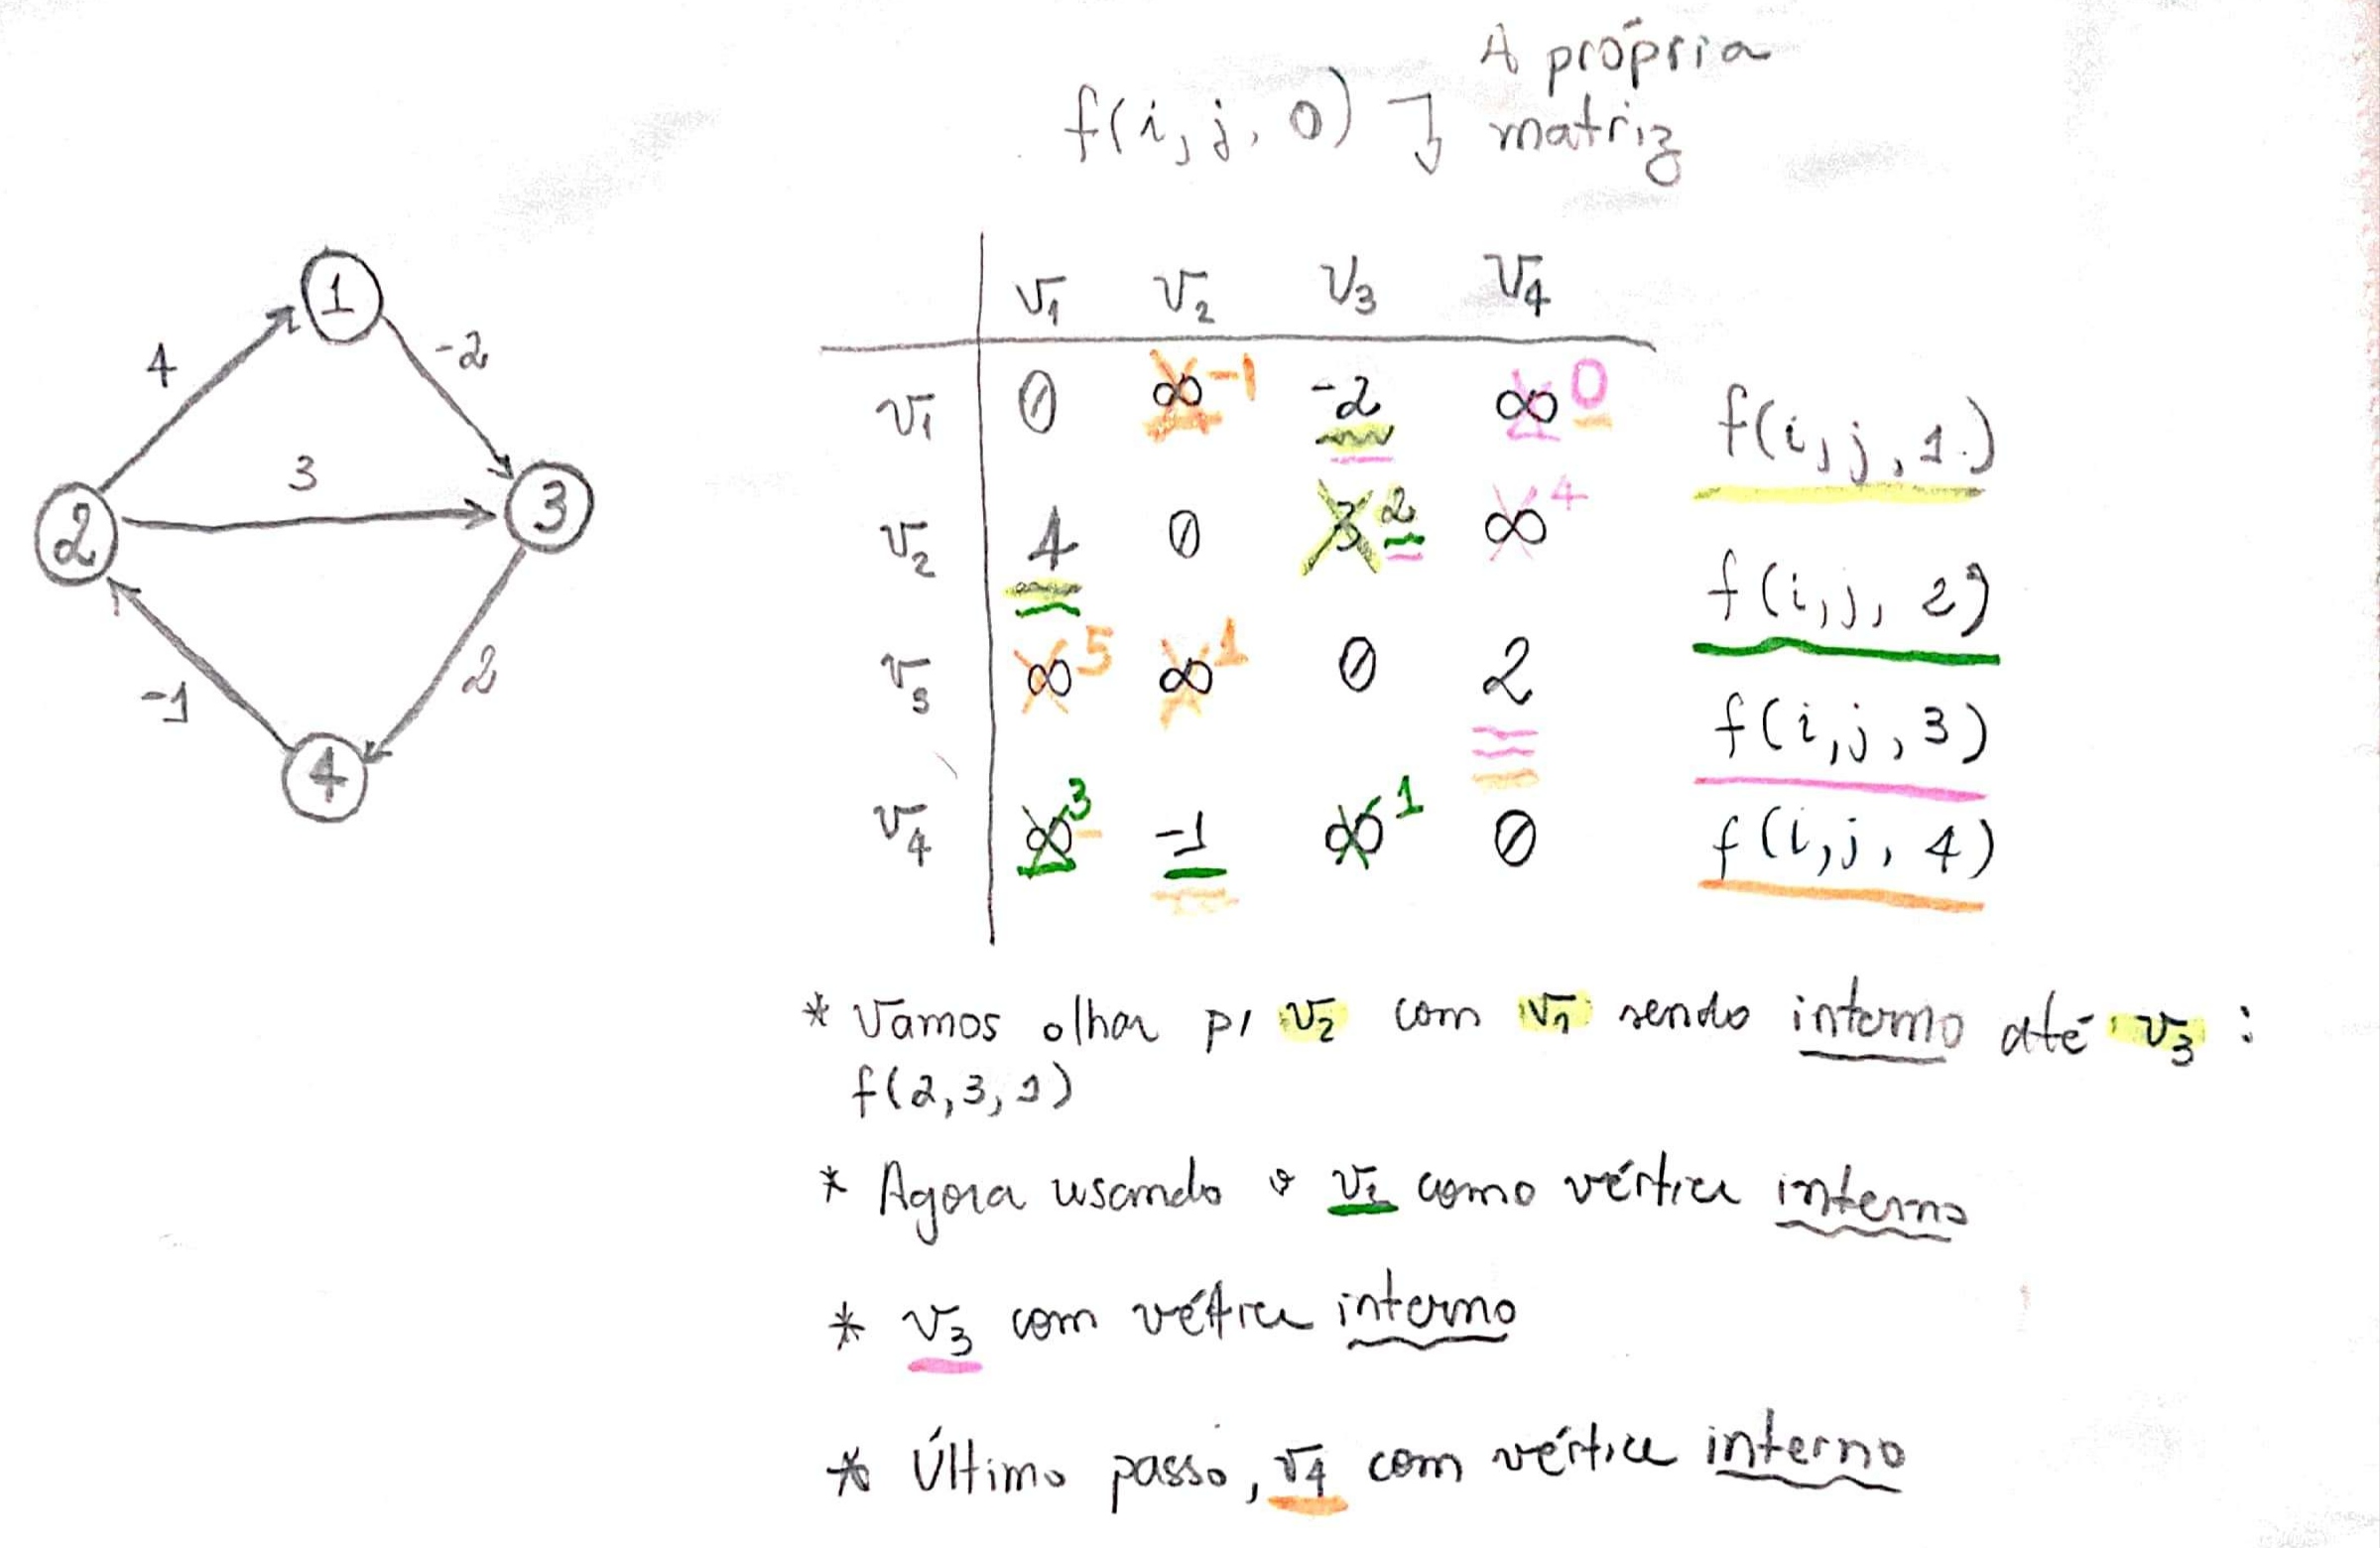 A própria
f(i, j, 0) matriz
1
4
-2
3
2
3
-1
2
4
v1 v2 v3 v4
v1 0 ∞ -1 -2 ∞ 0
f(i, j, 1.)
v2 4 0 3 2 ∞ 4
f(i, j, 2)
v3 ∞ 5 ∞ 1 0 2
f(i, j, 3)
v4 ∞ 3 -1 ∞ 1 0
f(i, j, 4)
* Vamos olhar p/ v2 com v1 sendo interno até v3 :
f(2, 3, 1)
* Agora usando o v2 como vértice interno
* v3 com vértice interno
* Último passo, v4 com vértice interno